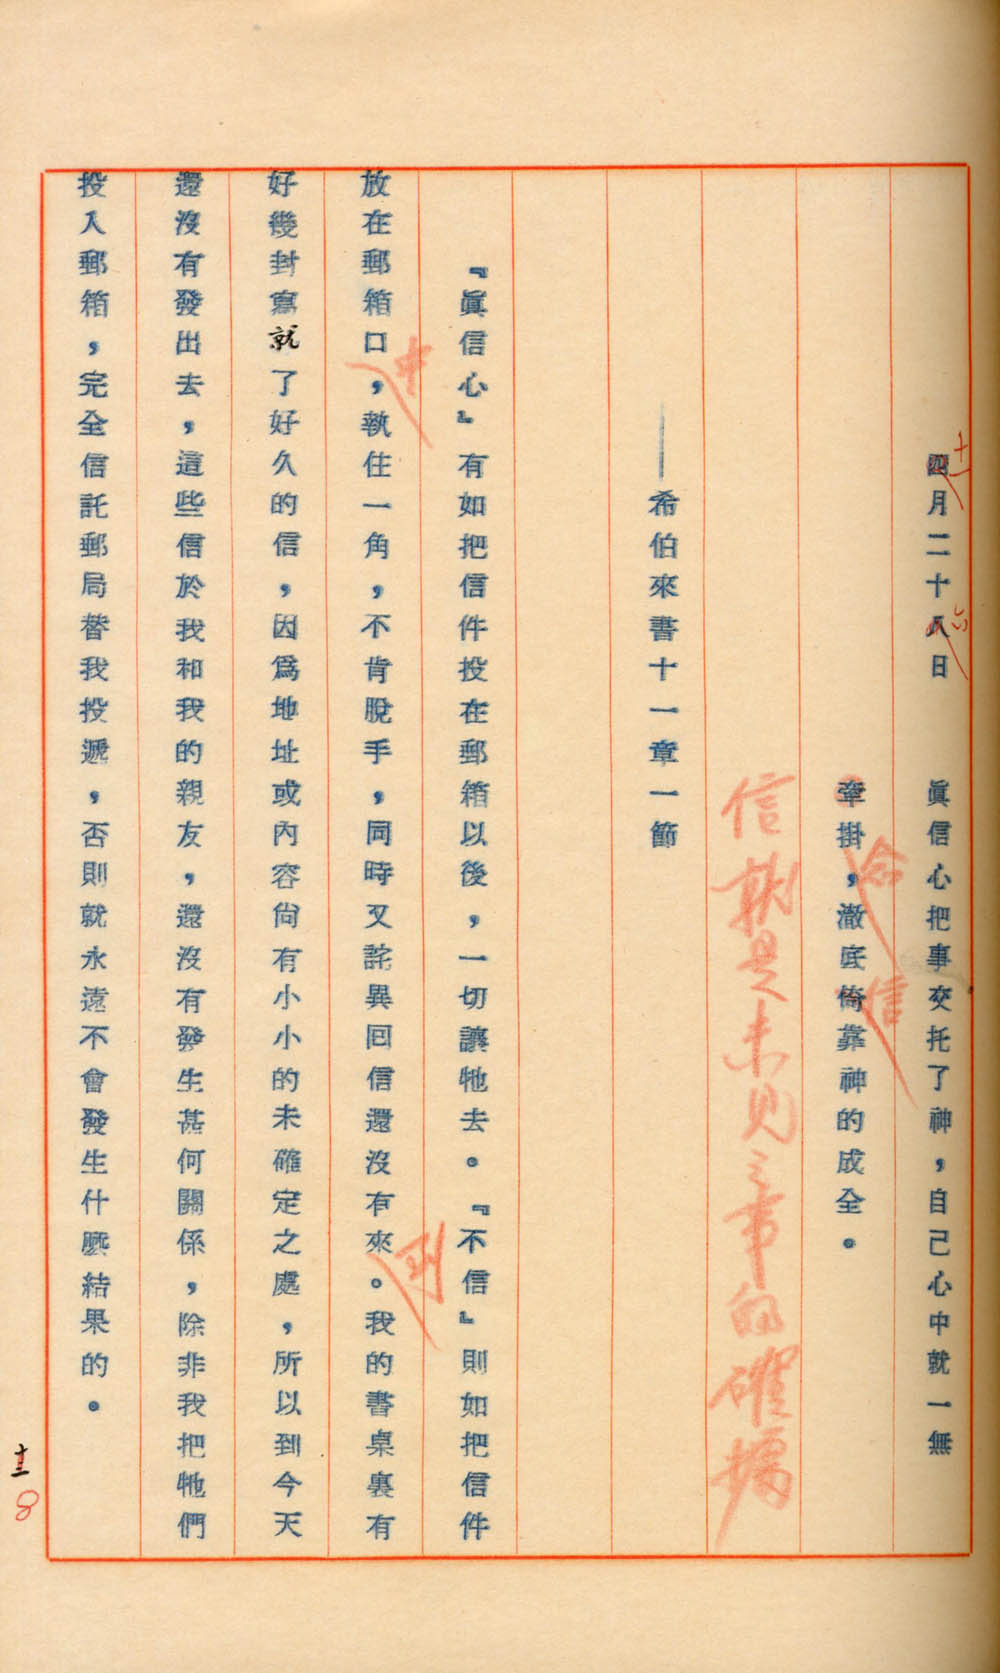 四月二十八日　眞信心把事交托了神，自己心中就一無
十一
六
牽掛，澈底倚靠神的成全。
念
信
信就是未見之事的確據
——希伯來書十一章一節
『眞信心』有如把信件投在郵箱以後，一切讓牠去。『不信』則如把信件
放在郵箱口，執住一角，不肯脫手，同時又詫異回信還沒有來。我的書桌裏有
中
到
好幾封寫就了好久的信，因爲地址或內容尙有小小的未確定之處，所以到今天
還沒有發出去，這些信於我和我的親友，還沒有發生甚何關係，除非我把牠們
投入郵箱，完全信託郵局替我投遞，否則就永遠不會發生什麼結果的。
8